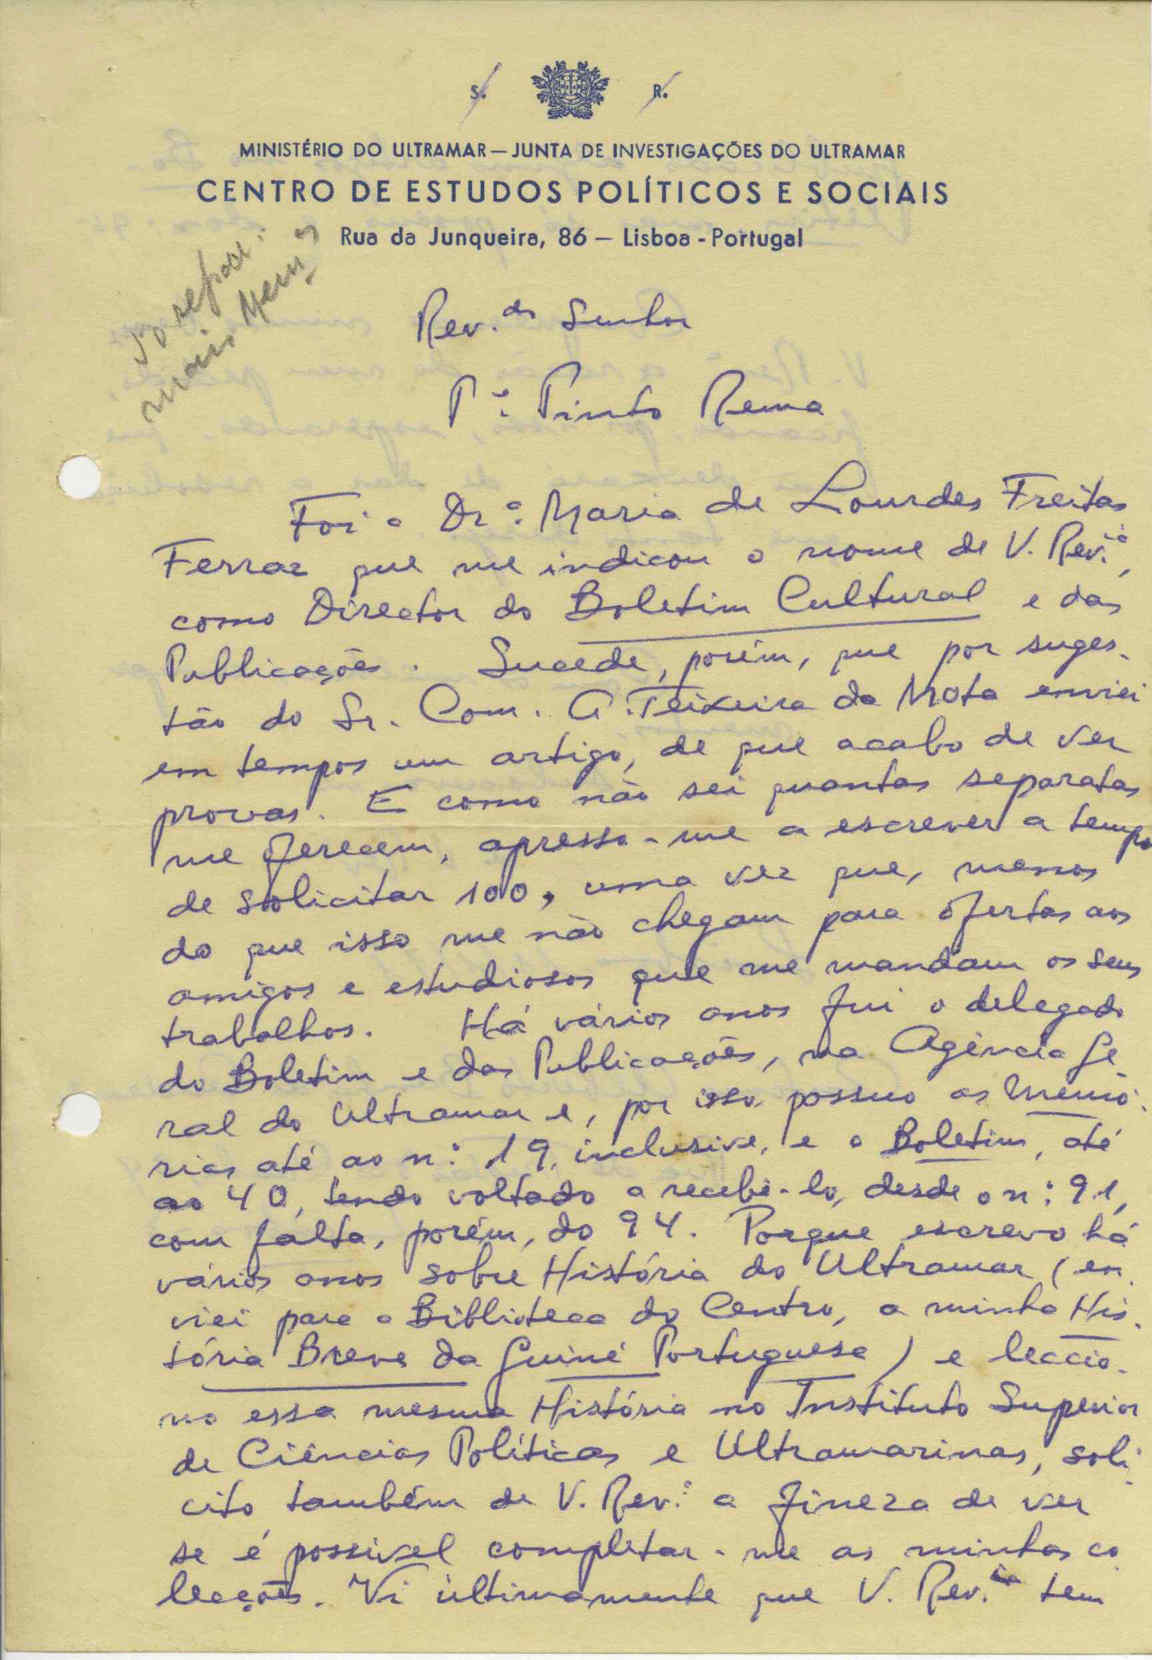 S. R.
MINISTÉRIO DO ULTRAMAR — JUNTA DE INVESTIGAÇÕES DO ULTRAMAR
CENTRO DE ESTUDOS POLÍTICOS E SOCIAIS
Rua da Junqueira, 86 — Lisboa - Portugal
mais Mem.
Rev.do Senhor
P.e Pinto Rema
Foi a Dr.a Maria de Lourdes Freitas
Ferraz que me indicou o nome de V. Rev.a,
como Director do Boletim Cultural e das
Publicações. Sucede, porém, que por suges-
tão do Sr. Com. A. Teixeira da Mota enviei
em tempos um artigo, de que acabo de ver
provas. E como não sei quantas separatas
me oferecem, apresso-me a escrever a tempo
de solicitar 100, uma vez que, menos
do que isso me não chegam para ofertas aos
amigos e estudiosos que me mandam os seus
trabalhos. Há vários anos fui o delegado
do Boletim e das Publicações, na Agência Ge
ral do Ultramar e, por isso possuo as Memó-
rias até ao n.º 19, inclusive, e o Boletim, até
ao 40, tendo voltado a recebê-lo, desde o n.º 91,
com falta, porém, do 94. Porque escrevo há
vários anos sobre História do Ultramar (en-
viei para a Biblioteca do Centro, a minha His-
tória Breve da Guiné Portuguesa) e leccio-
no essa mesma História no Instituto Superior
de Ciências Políticas e Ultramarinas, soli-
cito também de V. Rev.a a fineza de ver
se é possível completar-me as minhas co
lecções. Vi ùltimamente que V. Rev.ia tem